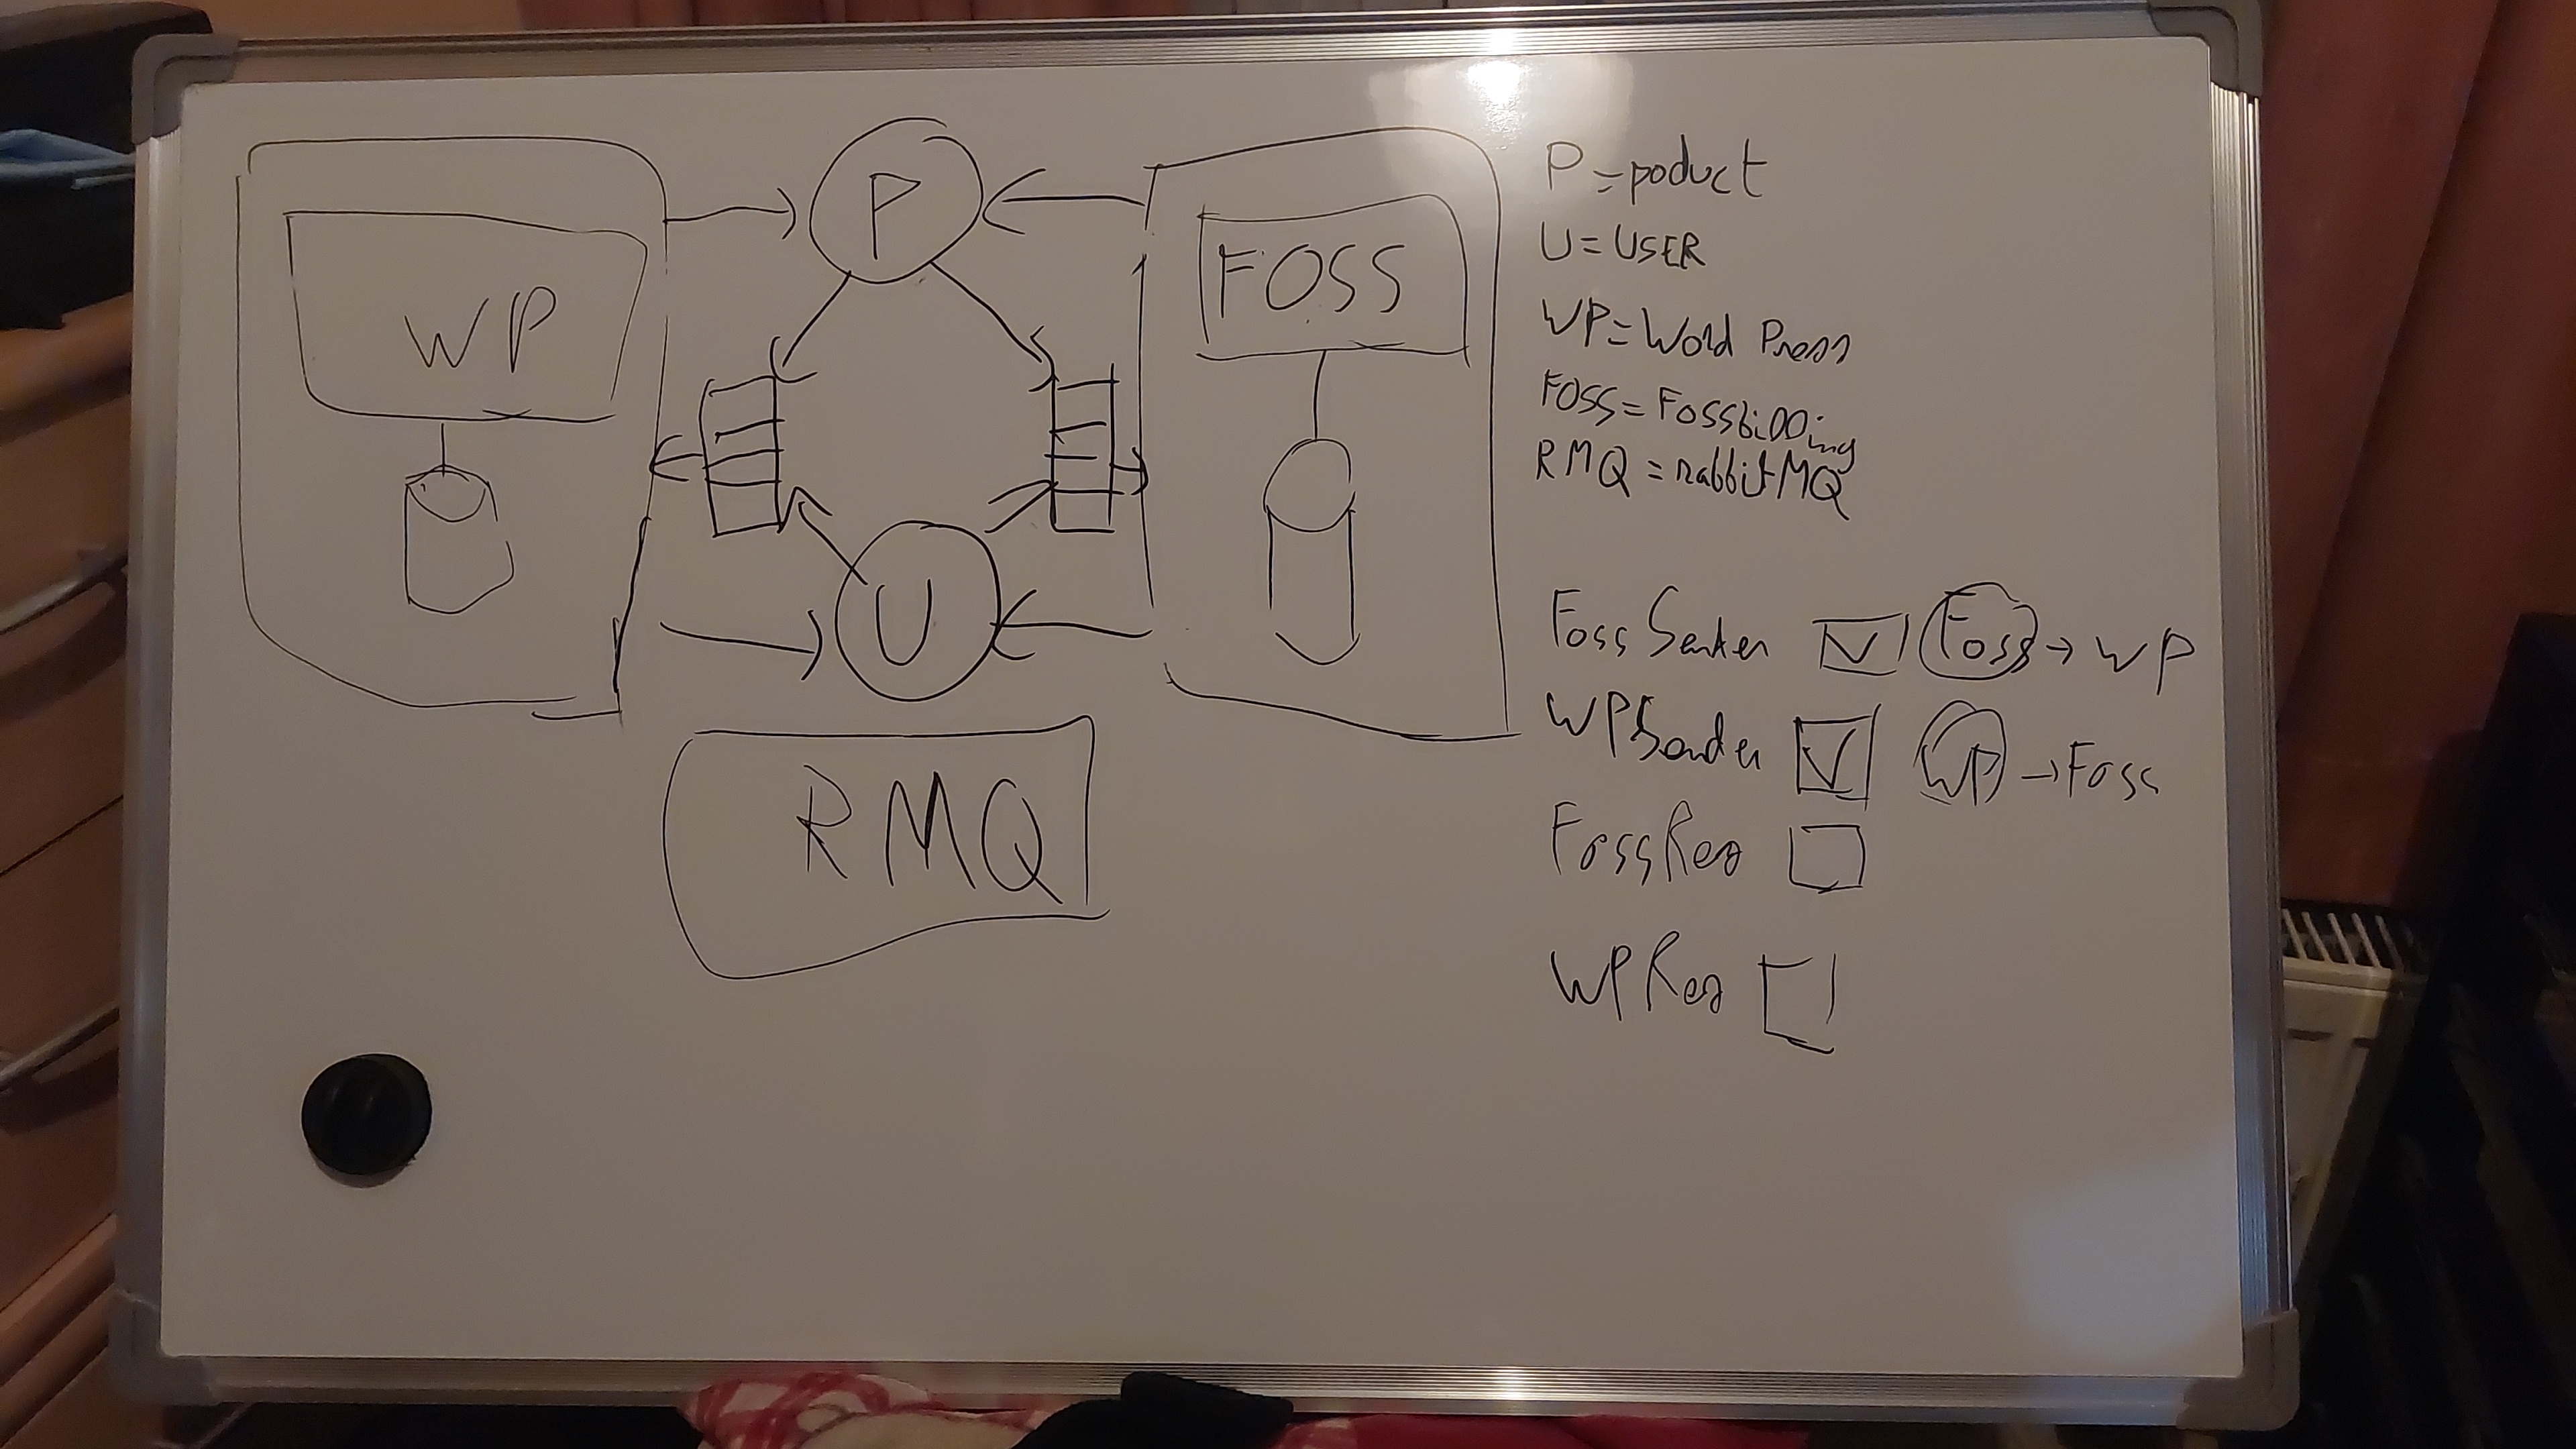 P
WP
FOSS
U
RMQ
P = poduct
U = USER
WP = Word Press
FOSS = Fossbilling
RMQ = rabbitMQ
Foss Sender Foss → WP
WPSender WP → Foss
Foss
WP